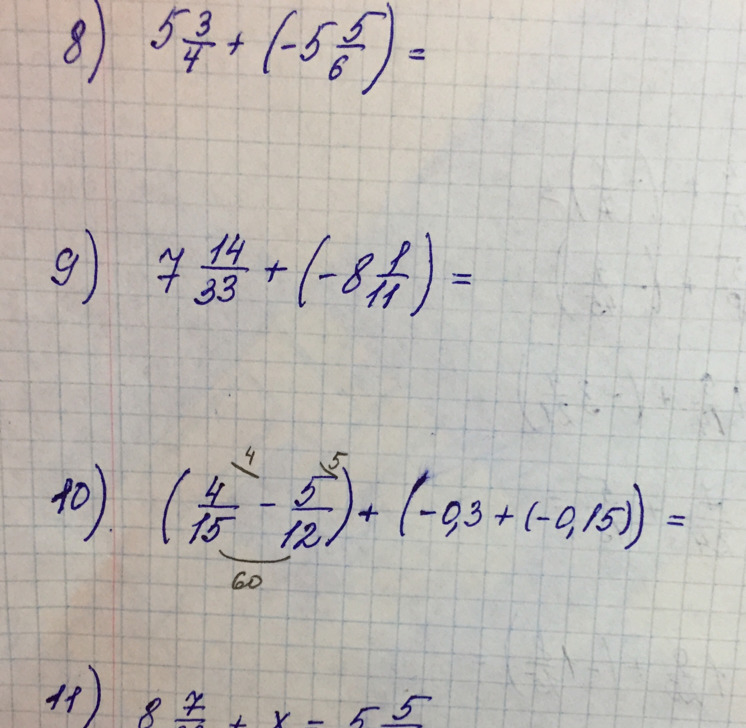 8) 5 3/4 + (-5 5/6) =
9) 7 14/33 + (-8 1/11) =
4 5
10) (4/15 - 5/12) + (-0,3 + (-0,15)) =
60
11) 8 7/ + x = 5 5/